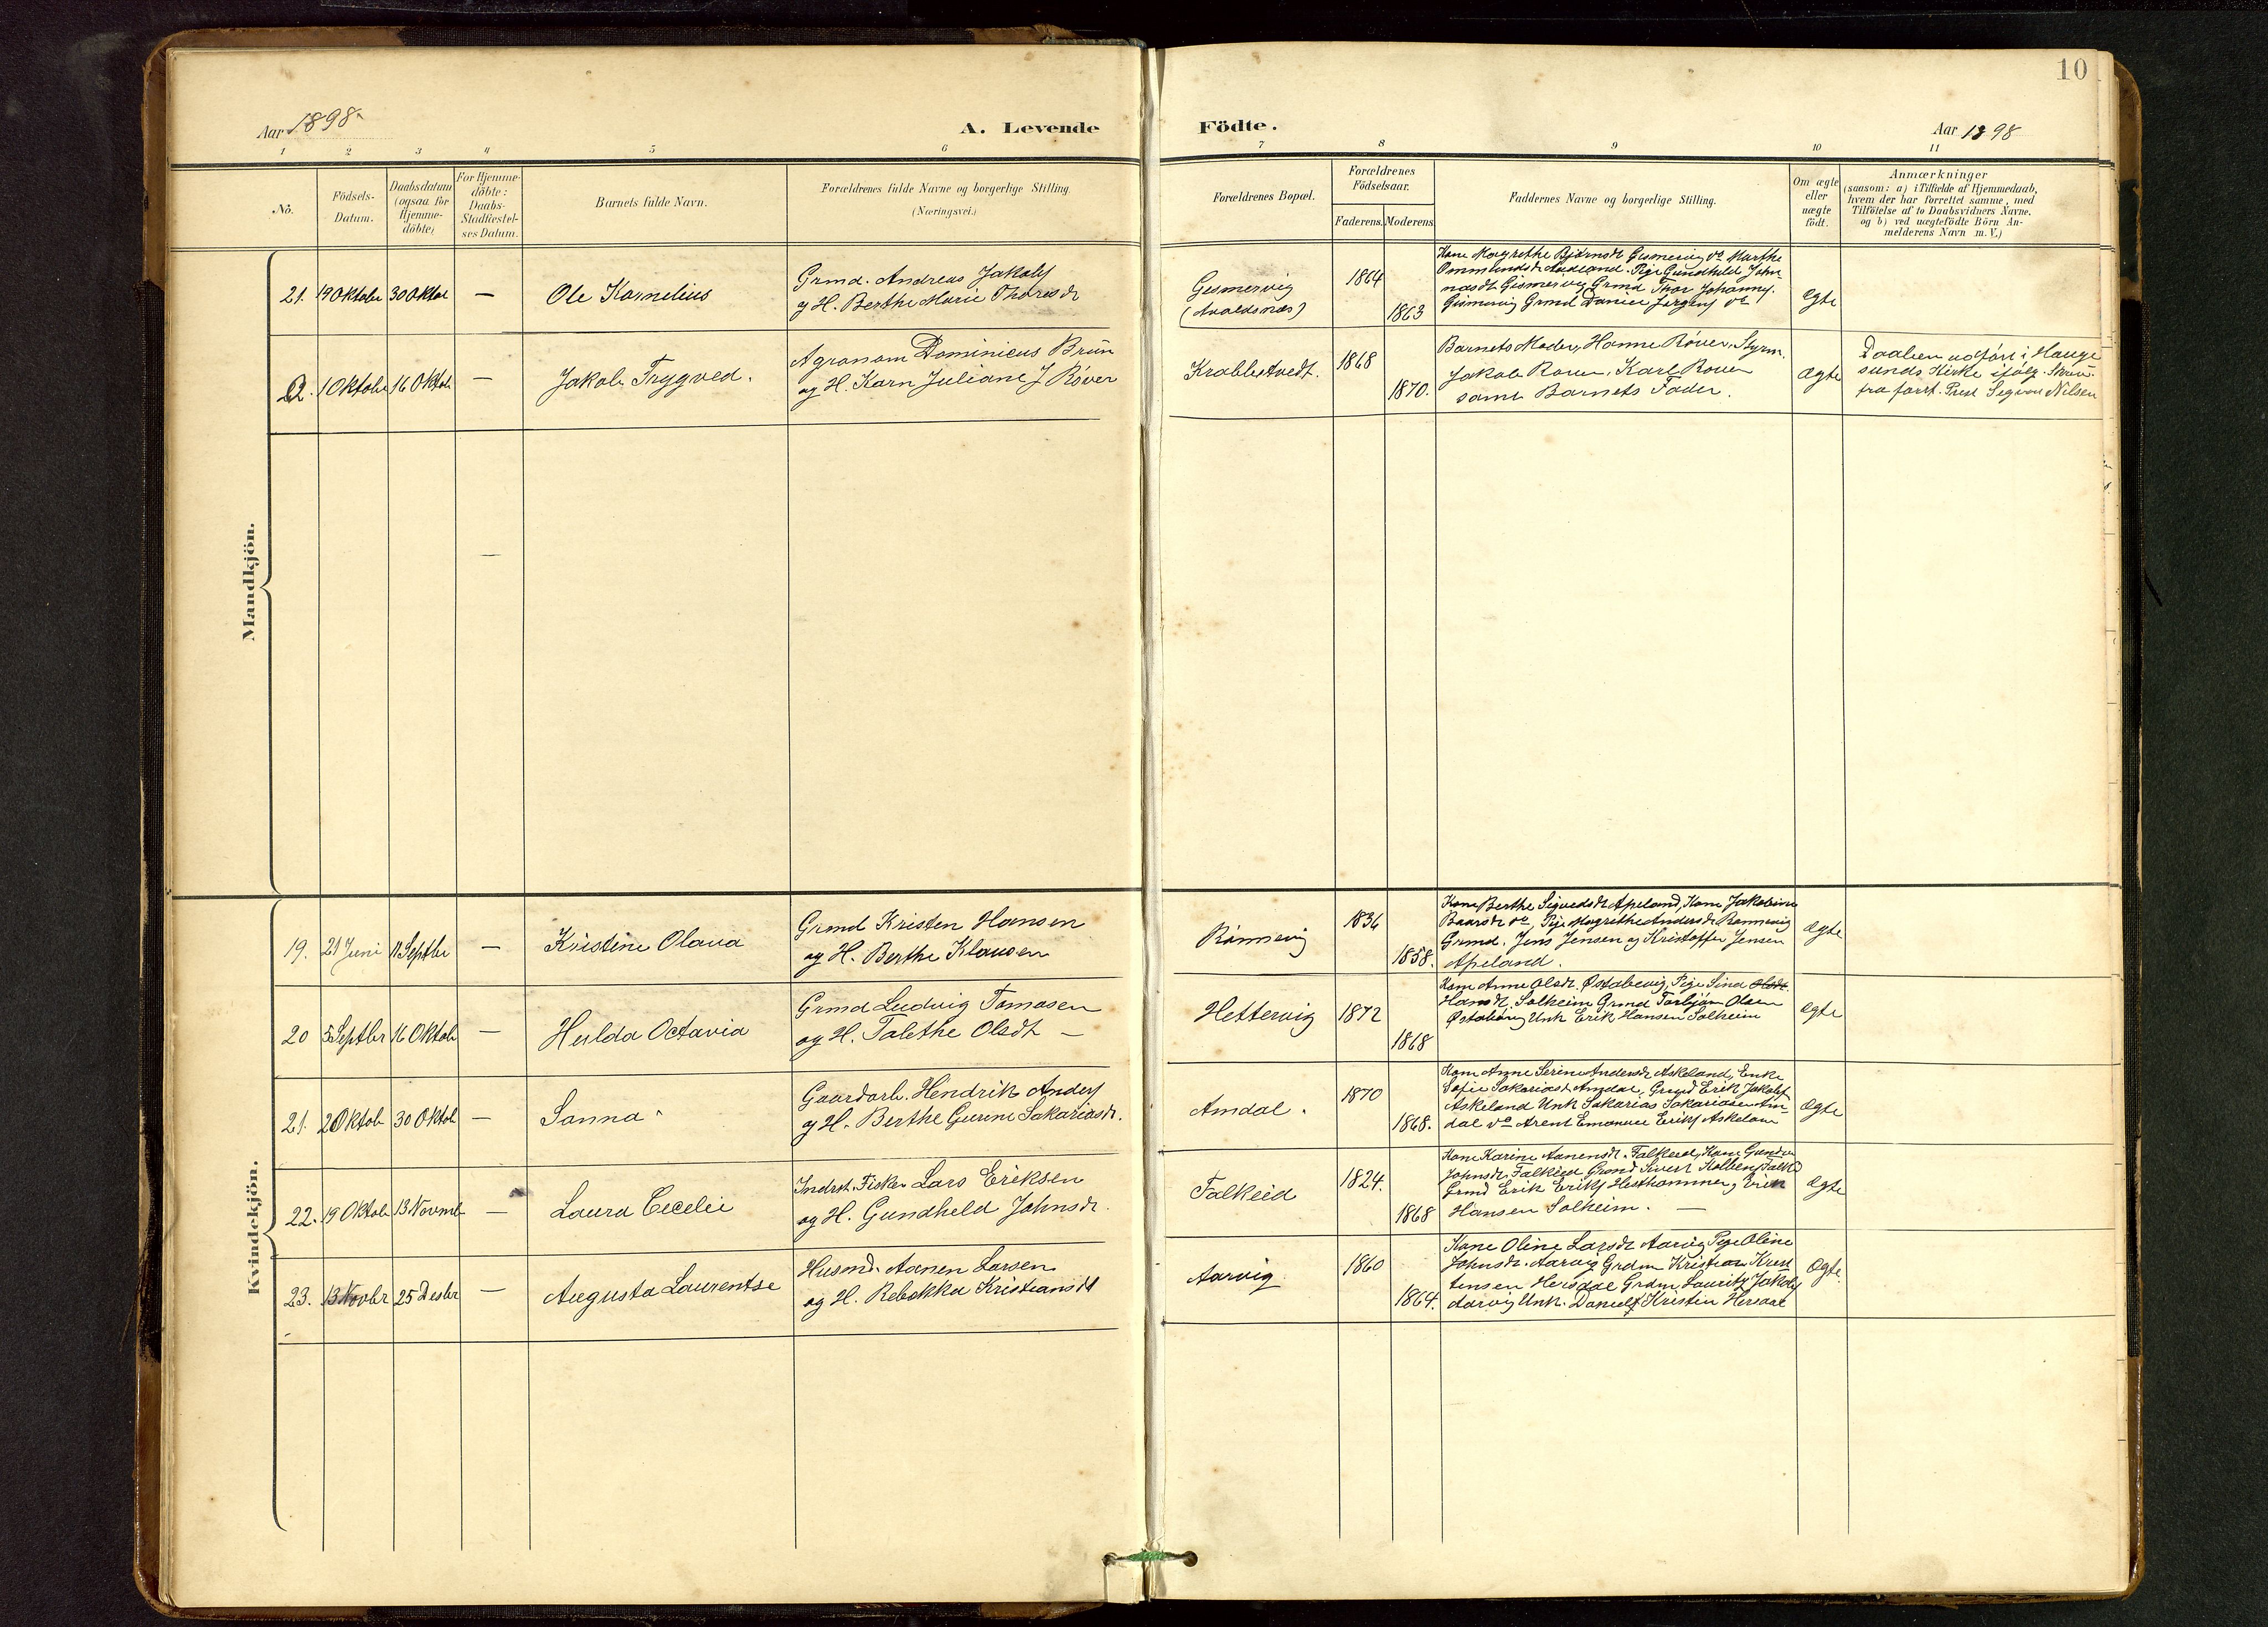 10
Aar 1898.
A. Levende
Födte.
Aar 1898
1 2 3 4 5 6
7 8 9 10 11
No.
Födsels-
Datum.
Daabsdatum
(ogsaa for
Hjemme-
döbte)
For Hjemme-
döbte:
Daabs-
Stadfæstel-
ses Datum.
Barnets fulde Navn.
Forældrenes fulde Navne og borgerlige Stilling.
(Næringsvei.)
Forældrenes Bopæl.
Forældrenes
Födselsaar.
Faderens. Moderens
Faddernes Navne og borgerlige Stilling.
Om ægte
eller
uægte
födt.
Anmærkninger
(saasom: a) i Tilfælde af Hjemmedaab,
hvem der har forrettet samme, med
Tilföielse af to Daabsvidners Navne,
og b) ved uægtefödte Börn An-
melderens Navn m. V.)
Mandkjön.
21. 19 Oktober 30 Oktob — Ole Kornelius
Grmd. Andreas Jakobs
og H. Berthe Marie Thoresdr
Gesmervig
(Avaldsnæs)
1864
1863
Kone Margrethe Bjørnsdr Gismervig do Marthe
Ommundsdr Aadland. Pige Gundhild John
nasdr Gismervig Grmd Thor Johannes.
Gismervig Grmd Daniel Jørgens do
Ægte
22. 1 Oktober 16 Oktob — Jakob Trygved.
Agronom Dominicus Brün
og H. Karn Juliane J Røver
Krabbestvedt.
1868
1870.
Barnets Moder, Hanne Røver, Styrm.
Jakob Røver, Karl Røver
samt Barnets Fader.
Ægte
Daaben udført i Hauge
sunds Kirke ifølg. Skriv.
fra forst. Prest Segvar Nilsen
Kvindekjön.
19. 21 Juni 11 Septbr — Kristine Olava
Grmd Kristen Hansen
og H. Berthe Klausen
Rønnevig
1836
1858.
Kone Berthe Sigvedsdr Apeland, Kone Jakobine
Baarsdr do, Pige Margrethe Andersdr Rønnevig
Grmd. Jens Jensen og Kristoffer Jensen
Apeland.
Ægte
20 5 Septbr 16 Oktob — Hulda Octavia
Grmd Ludvig Tomasen
og H. Talethe Olsdt —
Hettervig
1872
1868
Kone Anne Olsdr. Østabøvig, Pige Sina Olsdt.
Hansdr. Solheim Grmd Torbjørn Olsen
Østabøvig Unk Erik Hansen Solheim
Ægte
21. 2 Oktob 30 Oktob — Sanna
Gaardarb. Hendrik Anders
og H. Berthe Gurine Sakariasdr.
Amdal.
1870
1868.
Kone Anne Serine Andersdr Askeland, Enke
Sofie Sakariasd Amdal, Grmd Erik Jakobs
Askeland Unk Sakarias Sakariasen Am
dal do Arent Emanuel Eriks Askeland
Ægte
22. 19 Oktob 13 Novmb — Laura Cecelie
Indrst. Fisker Lars Eriksen
og H. Gundheld Johnsdr.
Falkeid
1824.
1868
Kone Karine Aanensdr. Falkeid, Kone Gundva
Johnsdr. Falkeid Grmd Sivert Kolbens Falk
Grmd Erik Eriks Hesthammer og Erik
Hansen Solheim. —
Ægte
23. 13 Novbr 25 Desbr — Augusta Laurentse
Husmd. Aanen Larsen
og H. Rebekka Kristiansdt
Aarvig
1860
1864.
Kone Oline Larsdr Aarvig Pige Oline
Johnsdr. Aarvig Grdm Kristian Krist
tensen Hersdal Grdm Lauritz Jakobs
Aarvig Unk. Daniels Kristin Hersdal
Ægte.